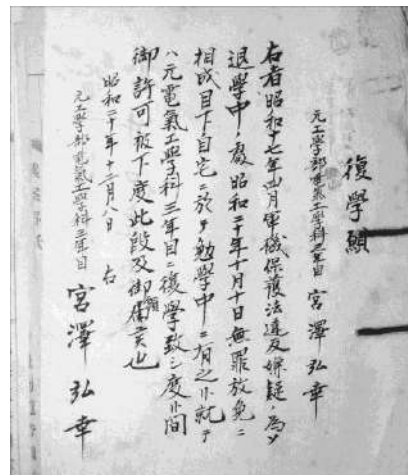 復學願
元工學部電氣工學科三年目 宮澤弘幸
右者昭和十七年四月軍機保護法違反嫌疑ノ為メ
退學中ノ處昭和二十年十月十日無罪放免ニ
相成目下自宅ニ於テ勉學中ニ有之候就テ
ハ元電氣工學科三年目ニ復學致シ度候間
御許可被下度此段及御願候也
昭和二十年十二月八日 右
元工學部電氣工學科三年目 宮澤弘幸